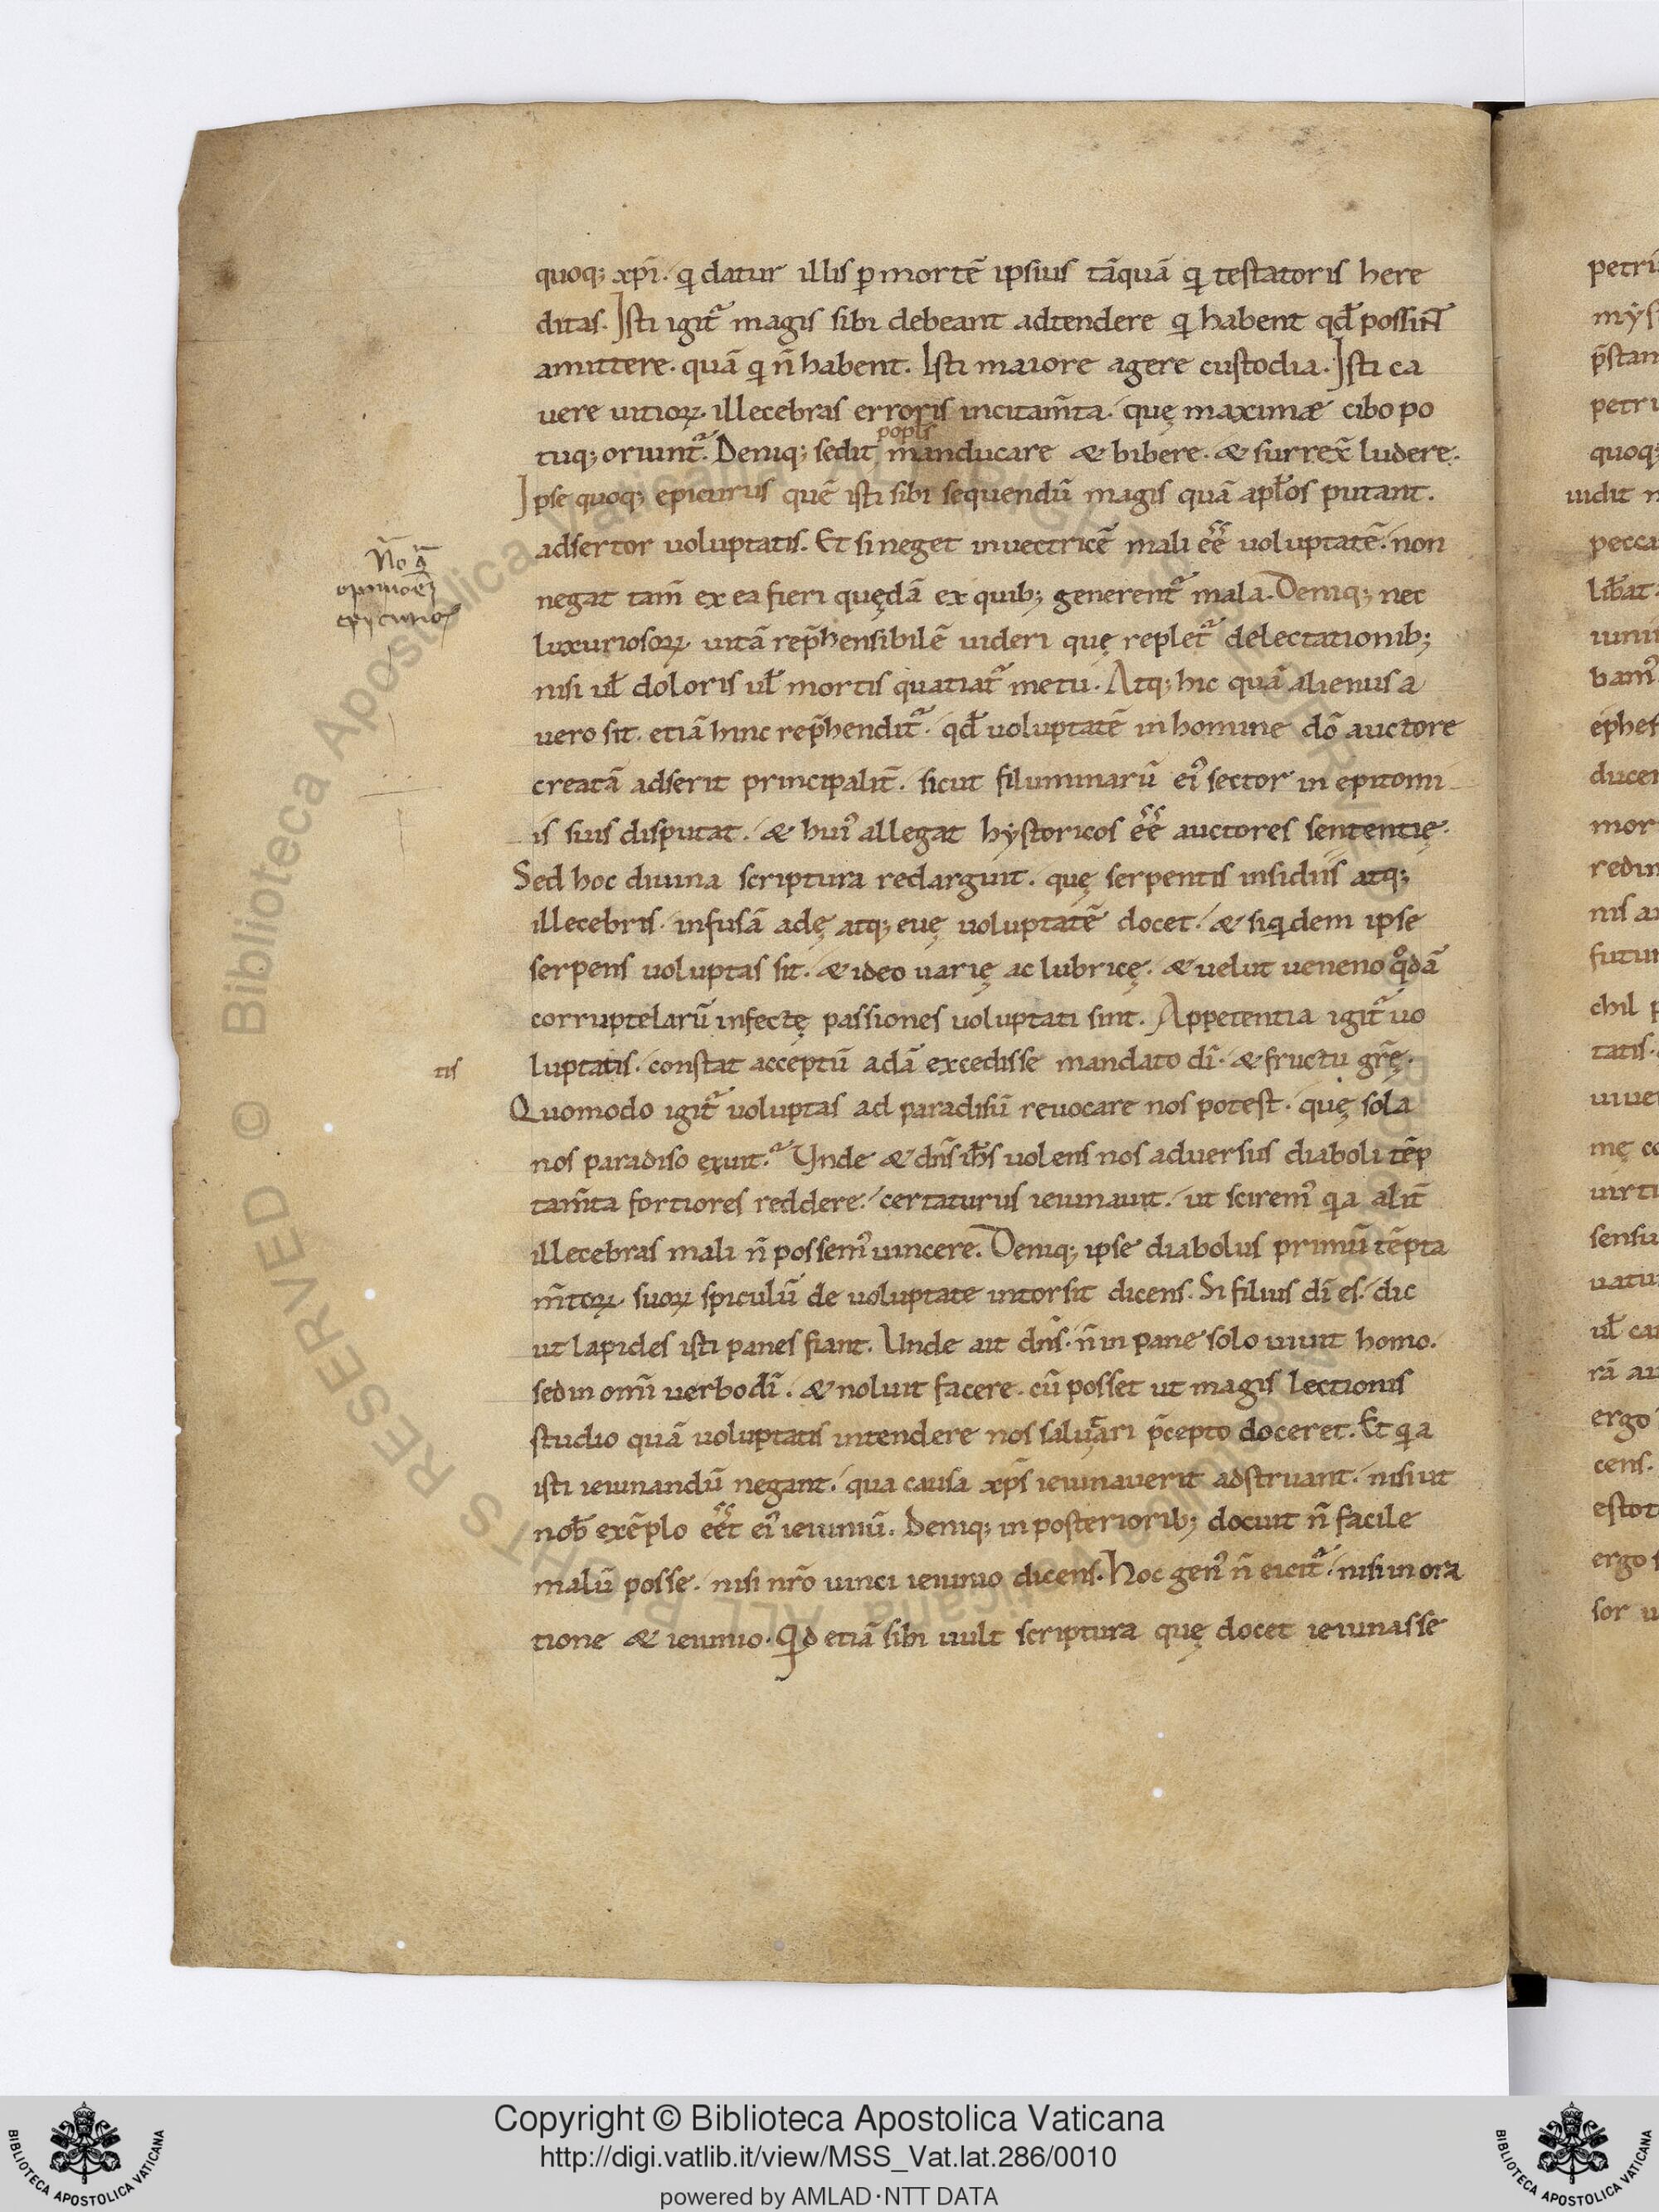 quoq; xpi̅. q datur illis p mortē ipsius tāquā q testatoris here
ditas. Isti igit᷑ magis sibi debeant adtendere q habent qd̄ possint
amittere. quā q n̄ habent. Isti maiore agere custodia. Isti ca
uere uitioꝝ. illecebras erroris incitam̅ta. quę maximæ cibo po
popl̅s
tuq; oriunt᷑. Deniq; sedit manducare & bibere. & surrex̅ ludere.
Ipse quoq; epicurus quē isti sibi sequendū magis quā apl̅os putant.
adsertor uoluptatis. Et si neget inuectricē mali ēē uoluptatē. non
No᷑
opinioēꝫ
epycurioꝝ
negat tam̅ ex ea fieri quędā ex quib; generent᷑ mala. Deniq; nec
luxuriosoꝝ. uitā rep̅hensibilē uideri quę replet᷑ delectationib;
nisi ul̅ doloris ul̅ mortis quatiat᷑ metu. Atq; hic quā alienus a
uero sit. etiā hinc rep̅hendit᷑. qd̄ uoluptatē in homine dō auctore
creatā adserit principalit̅. sicut filuminarū eiꝰ sector in epitomi
is suis disputat. & huiꝰ allegat hystoricos ēē auctores sententię.
Sed hoc diuina scriptura redarguit. quę serpentis insidiis atq;
illecebris. infusā adę atq; euę uoluptatē docet. & siqdem ipse
serpens uoluptas sit. & ideo uarię ac lubricę. & uelut ueneno qͦdā
corruptelarū infectę passiones uoluptati sint. Appetentia igit᷑ uo
tis
luptatis. constat acceptū adā excedisse mandato dī. & fructu gr̅ę.
Quomodo igit᷑ uoluptas ad paradisū reuocare nos potest. quę sola
nos paradiso exuit. Vnde & dn̅s ih̅s uolens nos aduersus diaboli tēp
tam̅ta fortiores reddere. certaturus ieiunauit. ut sciremꝰ qa alit̅
illecebras mali n̄ possemꝰ uincere. Deniq; ipse diabolus primū tēpta
m̅toꝝ. suoꝝ spiculū de uoluptate intorsit dicens. Si filius dī es. dic
ut lapides isti panes fiant. Unde ait dn̅s. n̄ in pane solo uiuit homo.
sed in om̅i uerbo dī. & noluit facere. cū posset ut magis lectionis
studio quā uoluptatis intendere nos saluari p̅cepto doceret. Et qa
isti ieiunandū negant. qua causa xp̅s ieiunauerit adstruant. nisi ut
nob̅ exēplo ēēt eiꝰ ieiuniū. Deniq; in posteriorib; docuit n̄ facile
malū posse. nisi nr̅o uinci ieiunio dicens. Hoc genꝰ n̄ eicit᷑. nisi in ora
tione & ieiunio. Qd etiā sibi uult scriptura quę docet ieiunasse
petri
p̅stan
quoq;
uidit n
pecca
lib̅at.
bamꝰ
ephes
ducen
mor
redim
nis au
futur
chil p
tatis.
uiue
mę co
uirtu
sensu
uatu
ul̅ ca
rā au
ergo
cens.
estot
ergo s
sor u
© Biblioteca Apostolica Vaticana ALL RIGHTS RESERVED
Copyright © Biblioteca Apostolica Vaticana
http://digi.vatlib.it/view/MSS_Vat.lat.286/0010
powered by AMLAD·NTT DATA
BIBLIOTECA APOSTOLICA VATICANA
BIBLIOTECA APOSTOLICA VATICANA